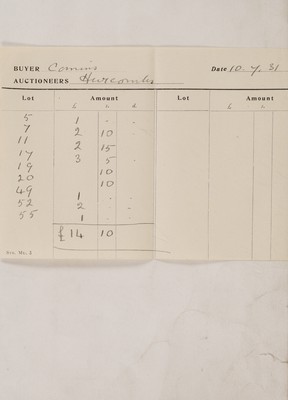 BUYER Comins Date 10.7.31
AUCTIONEERS Hurcombs
Lot Amount Lot Amount
£ s. d. £ s.
5 1 - -
7 2 10 -
11 2 15 -
17 3 5 -
19 10
20 10
49 1 - -
52 2 - -
55 1 - -
£ 14 10